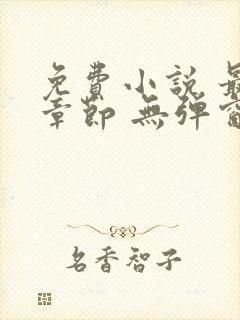 免費小説 最
章節 無彈窗
名香智子